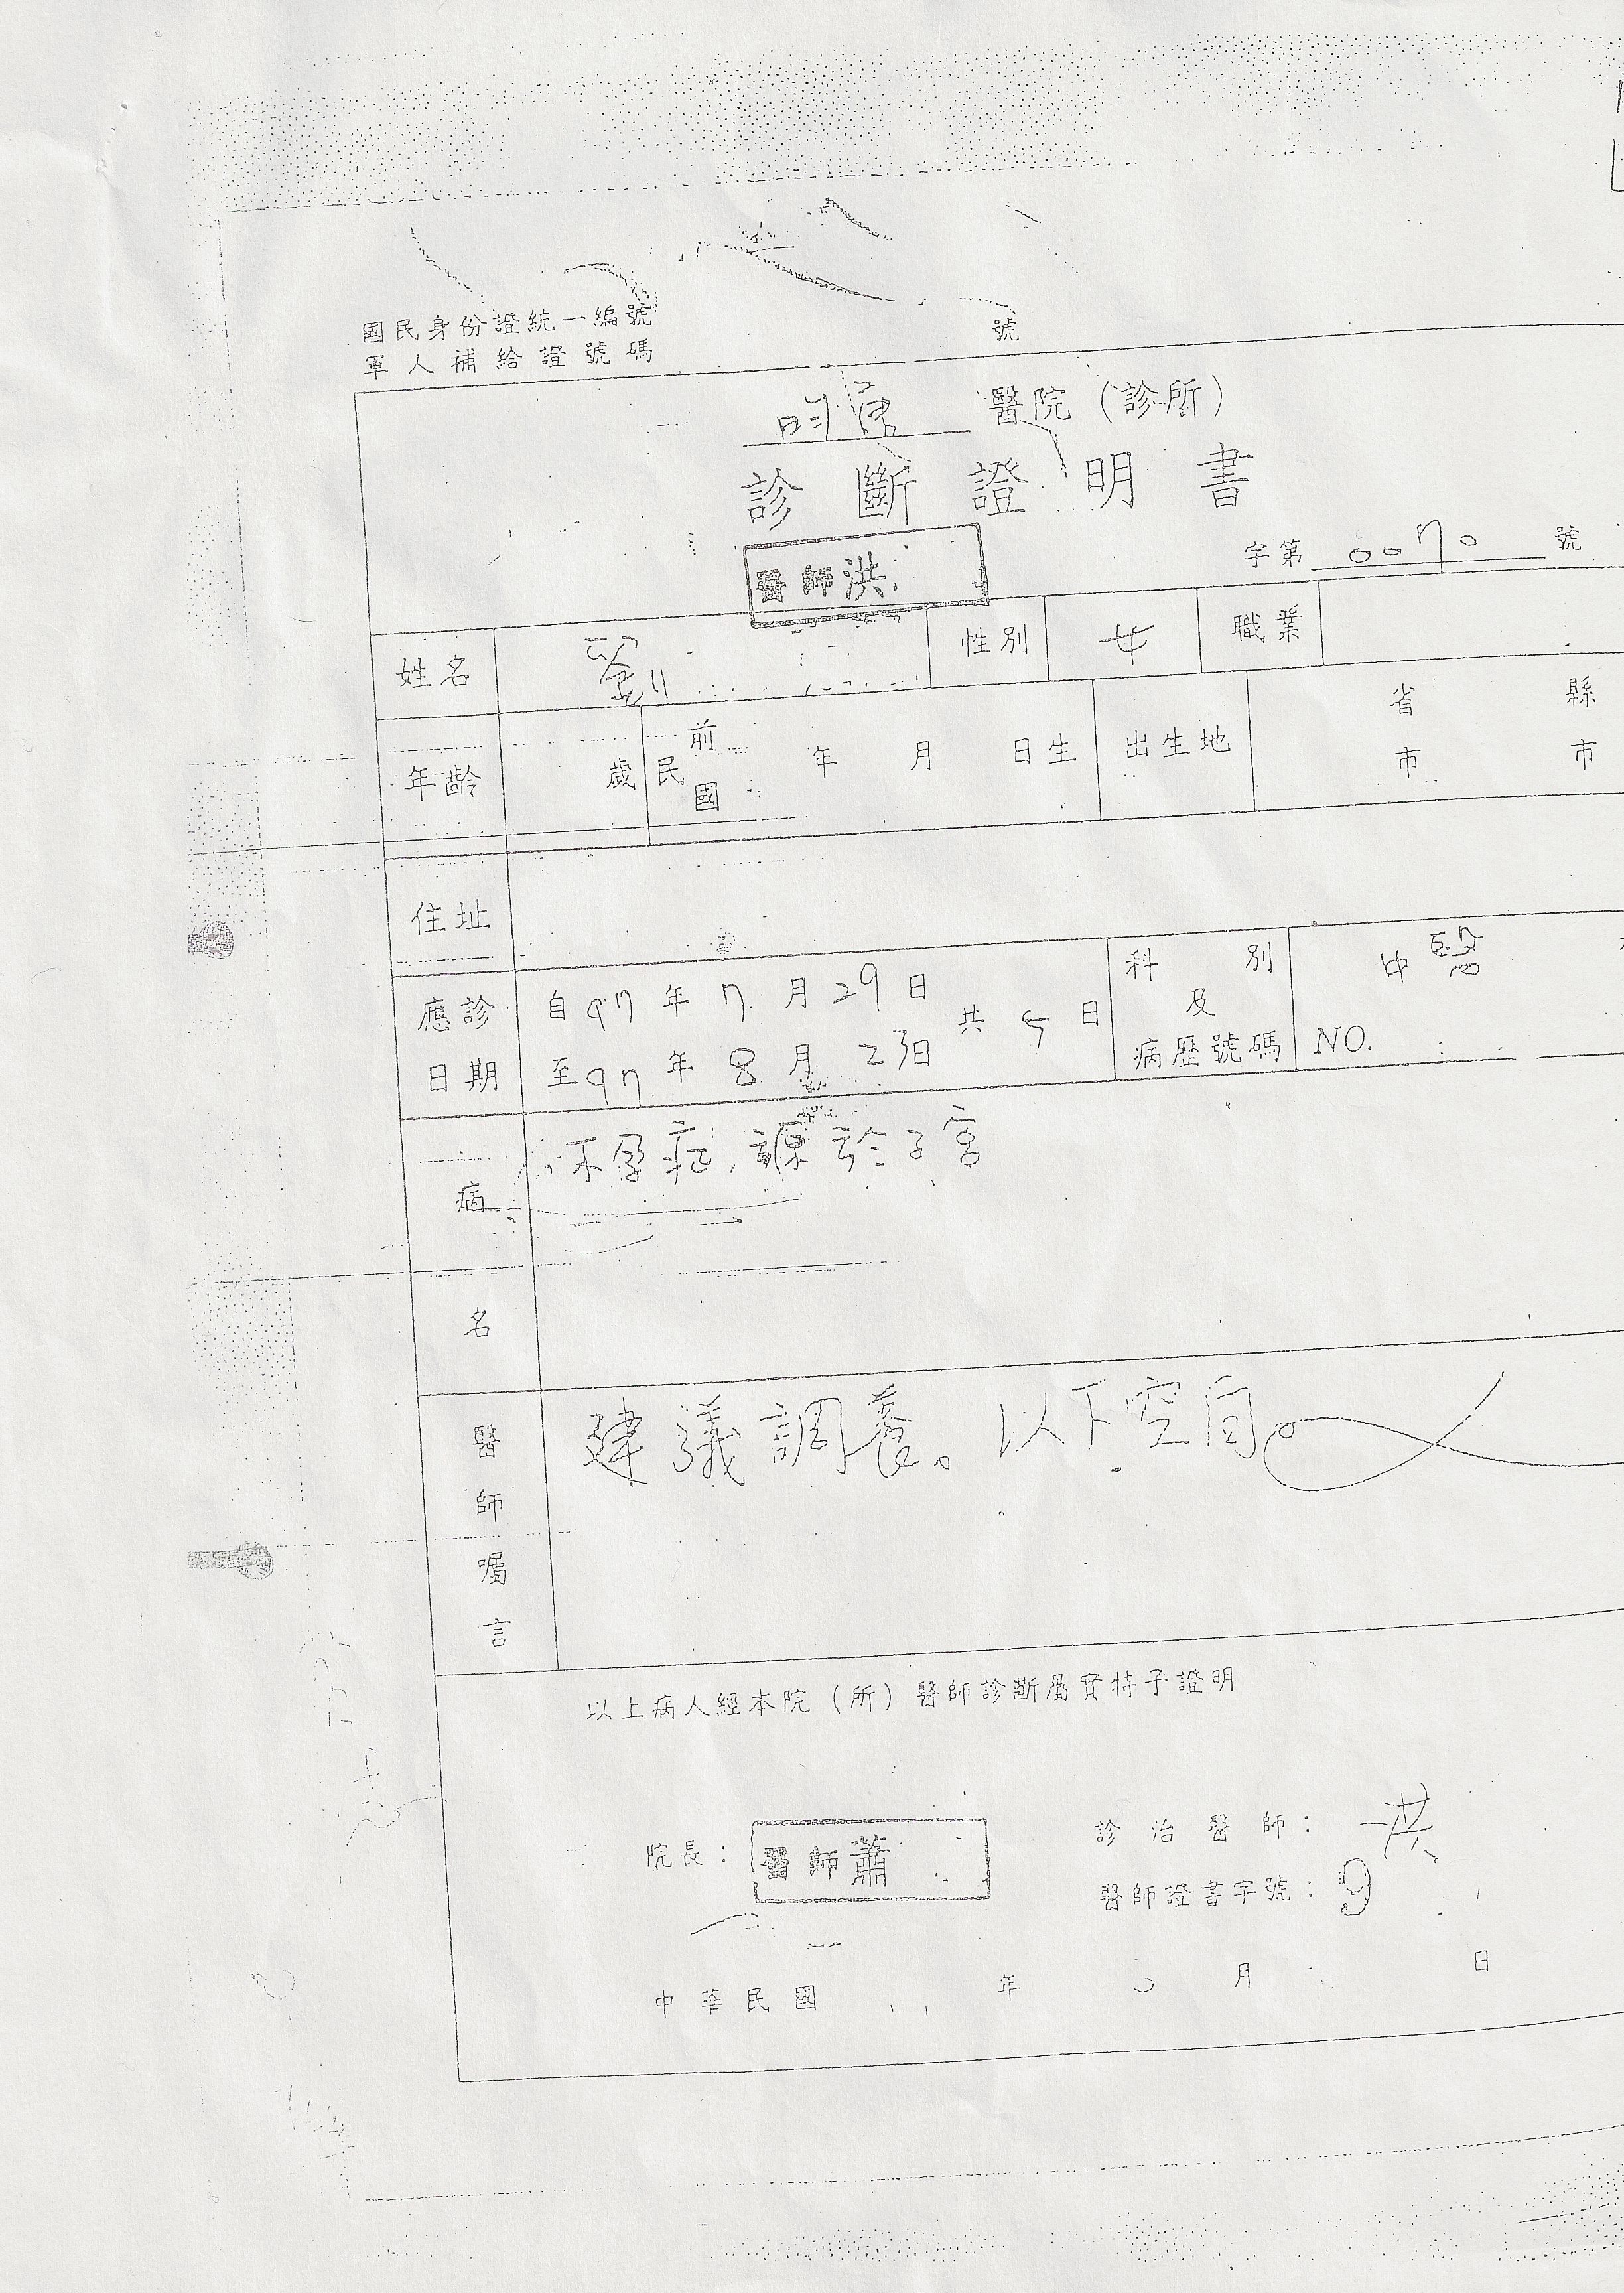 國民身份證統一編號
軍人補給證號碼
號
醫院（診所）
診斷證明書
醫師洪
字第 0070 號
姓名 劉 性別 女 職業
年齡 歲 民 前 國 年 月 日生 出生地 省 縣 市 市
住址
應診 自97年7月29日
日期 至97年8月23日
共5日
科別
及
病歷號碼
中醫
NO.
病
名
不孕症,源於子宮
醫
師
囑
言
建議調養。以下空白。
以上病人經本院（所）醫師診斷屬實特予證明
院長：醫師蕭
診治醫師：洪
醫師證書字號：
中華民國 年 月 日